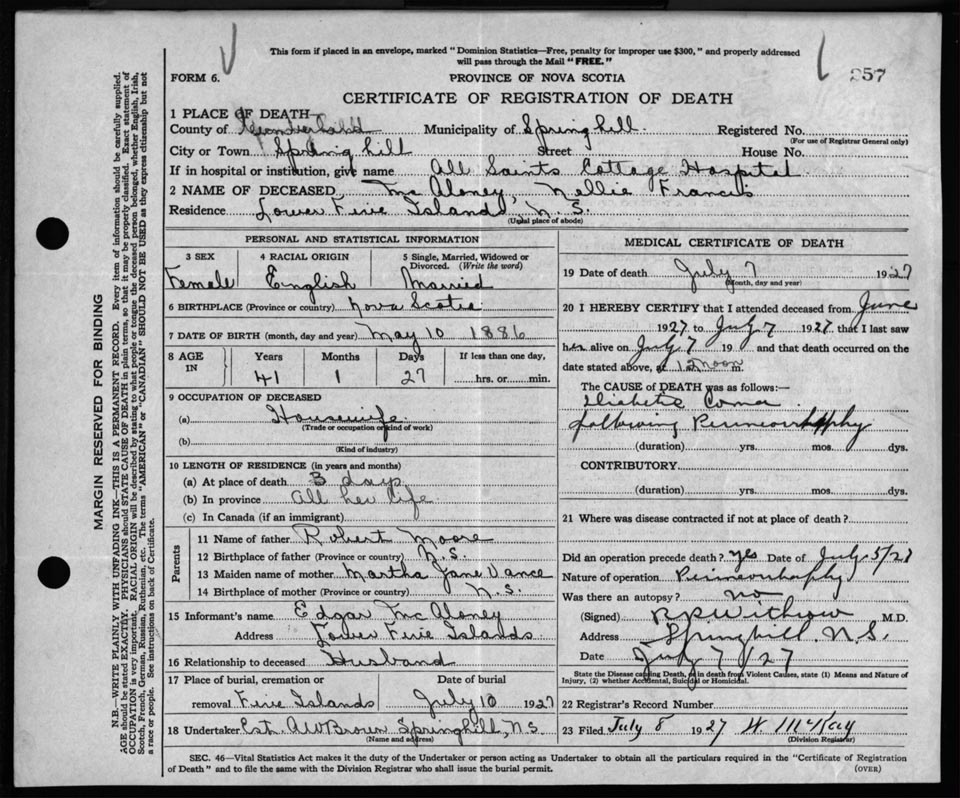 This form if placed in an envelope, marked "Dominion Statistics—Free, penalty for improper use $300," and properly addressed
will pass through the Mail "FREE."
257
FORM 6.
PROVINCE OF NOVA SCOTIA
CERTIFICATE OF REGISTRATION OF DEATH
1 PLACE OF DEATH—
County of Cumberland Municipality of Springhill Registered No.
(For use of Registrar General only)
City or Town Spring hill Street House No.
If in hospital or institution, give name All Saints Cottage Hospital
2 NAME OF DECEASED McAloney, Nellie Francis
Residence Lower Five Islands, N.S.
(Usual place of abode)
PERSONAL AND STATISTICAL INFORMATION
3 SEX 4 RACIAL ORIGIN 5 Single, Married, Widowed or
Divorced. (Write the word)
Female English Married
6 BIRTHPLACE (Province or country) Nova Scotia
7 DATE OF BIRTH (month, day and year) May 10 1886
8 AGE IN Years Months Days If less than one day,
41 1 27 hrs. or min.
9 OCCUPATION OF DECEASED
(a) Housewife
(Trade or occupation or kind of work)
(b)
(Kind of industry)
10 LENGTH OF RESIDENCE (in years and months)
(a) At place of death 3 days
(b) In province All her life
(c) In Canada (if an immigrant)
Parents
11 Name of father Robert Moore
12 Birthplace of father (Province or country) N.S.
13 Maiden name of mother Martha Jane Vance
14 Birthplace of mother (Province or country) N.S.
15 Informant's name Edgar McAloney
Address Lower Five Islands
16 Relationship to deceased Husband
17 Place of burial, cremation or Date of burial
removal Five Islands July 10 1927
18 Undertaker Est. AW Brown Springhill, N.S.
(Name and address)
MEDICAL CERTIFICATE OF DEATH
19 Date of death July 7 1927
(Month, day and year)
20 I HEREBY CERTIFY that I attended deceased from June
1927 to July 7 1927 that I last saw
her alive on July 7 19 and that death occurred on the
date stated above, at 12 noon m.
The CAUSE of DEATH was as follows:—
Diabetic Coma
following Perineorrhaphy
(duration) yrs. mos. dys.
CONTRIBUTORY
(duration) yrs. mos. dys.
21 Where was disease contracted if not at place of death?
Did an operation precede death? Yes Date of July 5/27
Nature of operation Perineorrhaphy
Was there an autopsy? no
(Signed) Withrow M.D.
Address Springhill N.S.
Date July 7/27
State the Disease causing Death, or in death from Violent Causes, state (1) Means and Nature of
Injury, (2) whether Accidental, Suicidal or Homicidal.
22 Registrar's Record Number
23 Filed July 8 1927 W. McKay
(Division Registrar)
SEC. 46—Vital Statistics Act makes it the duty of the Undertaker or person acting as Undertaker to obtain all the particulars required in the "Certificate of Registration
of Death" and to file the same with the Division Registrar who shall issue the burial permit.
(OVER)
MARGIN RESERVED FOR BINDING
N.B.—WRITE PLAINLY WITH UNFADING INK—THIS IS A PERMANENT RECORD. Every item of information should be carefully supplied.
AGE should be stated EXACTLY. PHYSICIANS should STATE CAUSE OF DEATH in plain terms, so that it may be properly classified. Exact statement of
OCCUPATION is very important. RACIAL ORIGIN will be described by stating to what people or tongue the deceased person belonged, whether English, Irish,
Scotch, French, German, Russian, Ruthenian, etc. The terms "AMERICAN" or "CANADIAN" SHOULD NOT BE USED as they express citizenship but not
a race or people. See instructions on back of Certificate.